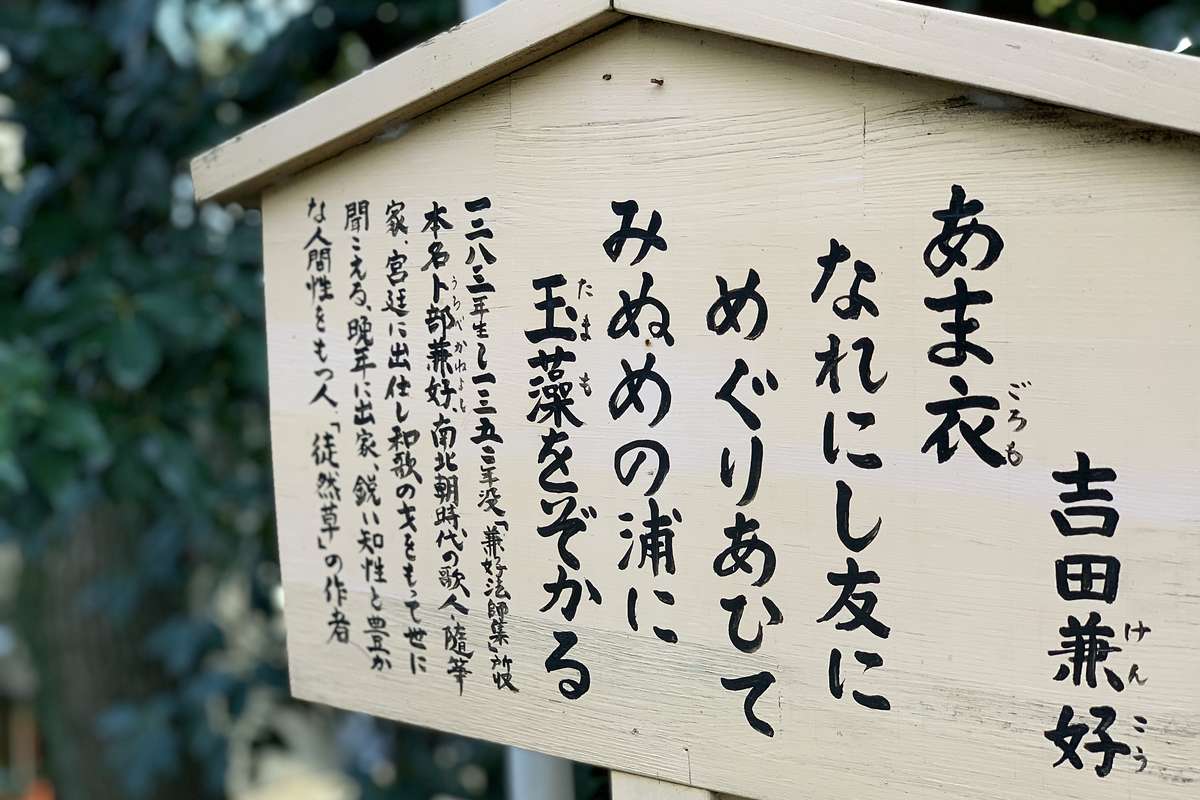 吉田兼好
けんこう
あま衣
ごろも
なれにし友に
めぐりあひて
みぬめの浦に
玉藻をぞかる
たまも
一二八三年生し一三五二年没「兼好法師集」所収
本名卜部兼好、南北朝時代の歌人・随筆
うらべかねよし
家、宮廷に出仕し和歌の才をもって世に
聞こえる、晩年に出家、鋭い知性と豊か
な人間性をもつ人、「徒然草」の作者